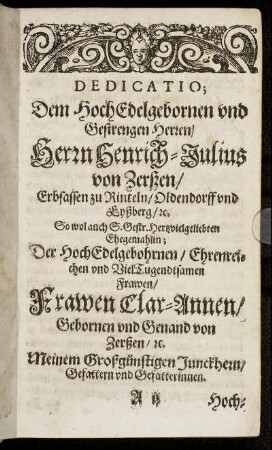 DEDICATIO;
Dem HochEdelgebornen vnd
Gestrengen Herren/
Herrn Henrich-Julius
von Zerßen/
Erbsassen zu Rinteln/ Oldendorff vnd
Eyßberg/ ꝛc.
So wol auch S. Gestr. Hertzvielgeliebten
Ehegemahlin;
Der HochEdelgebohrnen/ Ehrenrei-
chen vnd VielTugendtsamen
Frawen/
Frawen Clar-Annen/
Gebornen vnd Genand von
Zerßen/ ꝛc.
Meinem Großgünstigen Junckhern/
Gefattern vnd Gefatterinnen.
A ij Hoch-